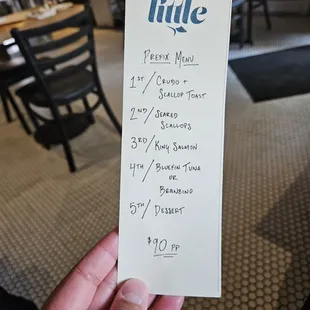 little
PREFIX MENU
1ST / CRUDO +
SCALLOP TOAST
2ND / SEARED
SCALLOPS
3RD / KING SALMON
4TH / BLUEFIN TUNA
OR
BRANZINO
5TH / DESSERT
$90 PP